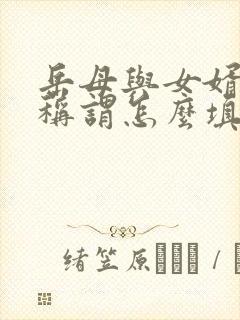 岳母與女婿
稱謂怎麼填
緒笠原